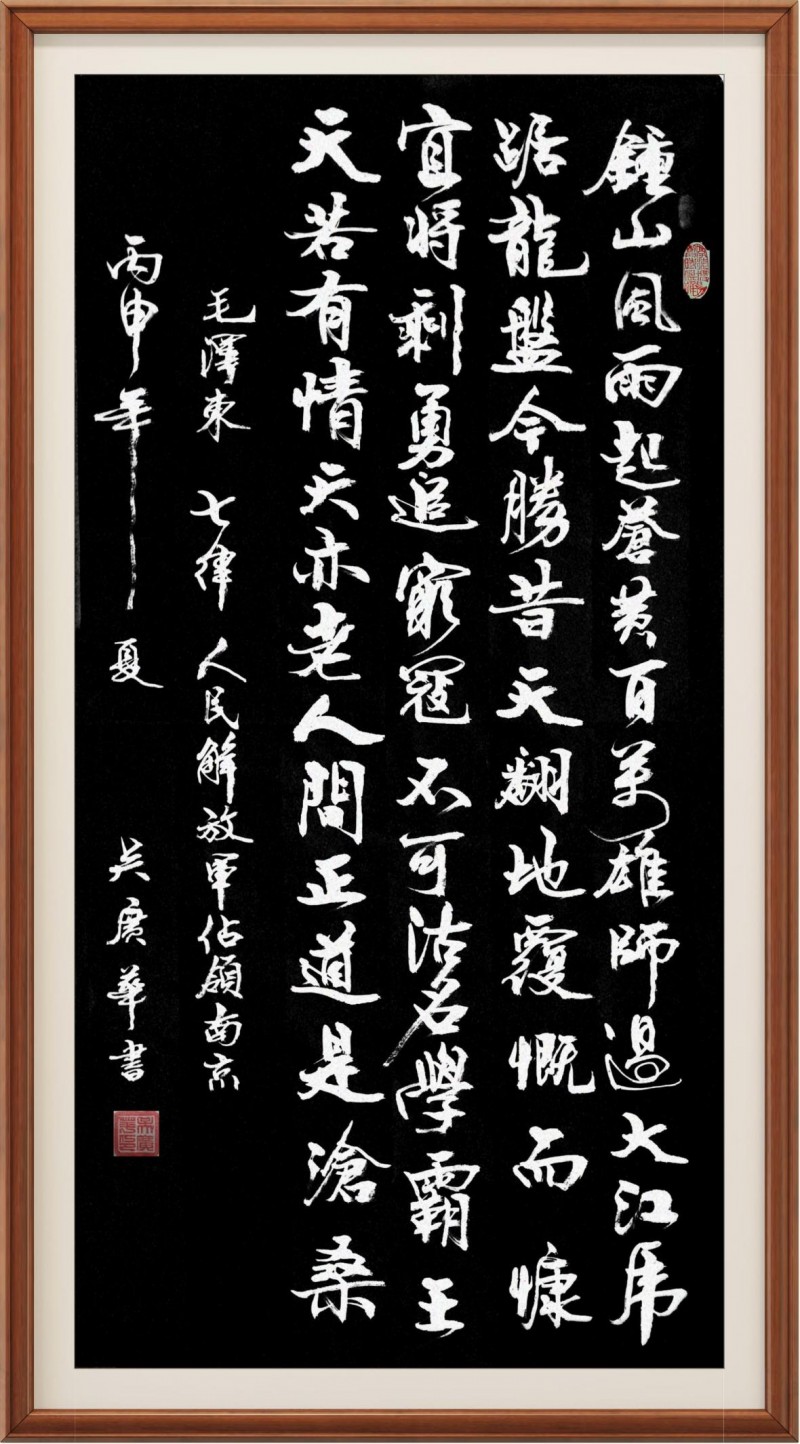 鐘山風雨起蒼黃百萬雄師過大江虎
踞龍盤今勝昔天翻地覆慨而慷
宜將剩勇追窮寇不可沽名學霸王
天若有情天亦老人間正道是滄桑
毛澤東 七律 人民解放軍佔領南京
丙申年 夏 吴廣華書